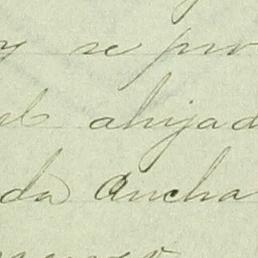 y se pro
el ahijad
da Ancha